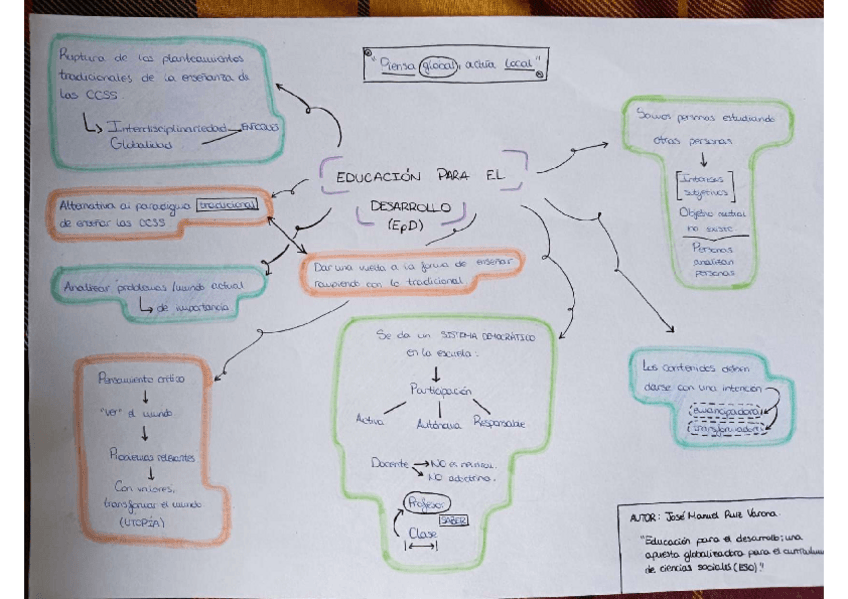 "Piensa glocal, actúa local"
EDUCACIÓN PARA EL
DESARROLLO
(EpD)
Ruptura de los planteamientos
tradicionales de la enseñanza de
las CCSS
Interdisciplinariedad ENFOQUES
Globalidad
Alternativa al paradigma tradicional
de enseñar las CCSS
Analizar problemas/mundo actual
de importancia
Dar una vuelta a la forma de enseñar
rompiendo con lo tradicional
Pensamiento crítico
"ver" el mundo
Problemas relevantes
Con valores,
transformar el mundo
(UTOPÍA)
Se da un SISTEMA DEMOCRÁTICO
en la escuela:
Participación
Activa
Autónoma
Responsable
Docente
NO es neutral.
NO adoctrina.
Profesor
SABER
Clase
Somos personas estudiando
otras personas
Intereses
subjetivos
Objetivo neutral
no existe
Personas
analizan
personas
Los contenidos deben
darse con una intención
emancipadora
transformadora
AUTOR: José Manuel Ruiz Varona.
"Educación para el desarrollo: una
apuesta globalizadora para el currículum
de ciencias sociales (ESO)."